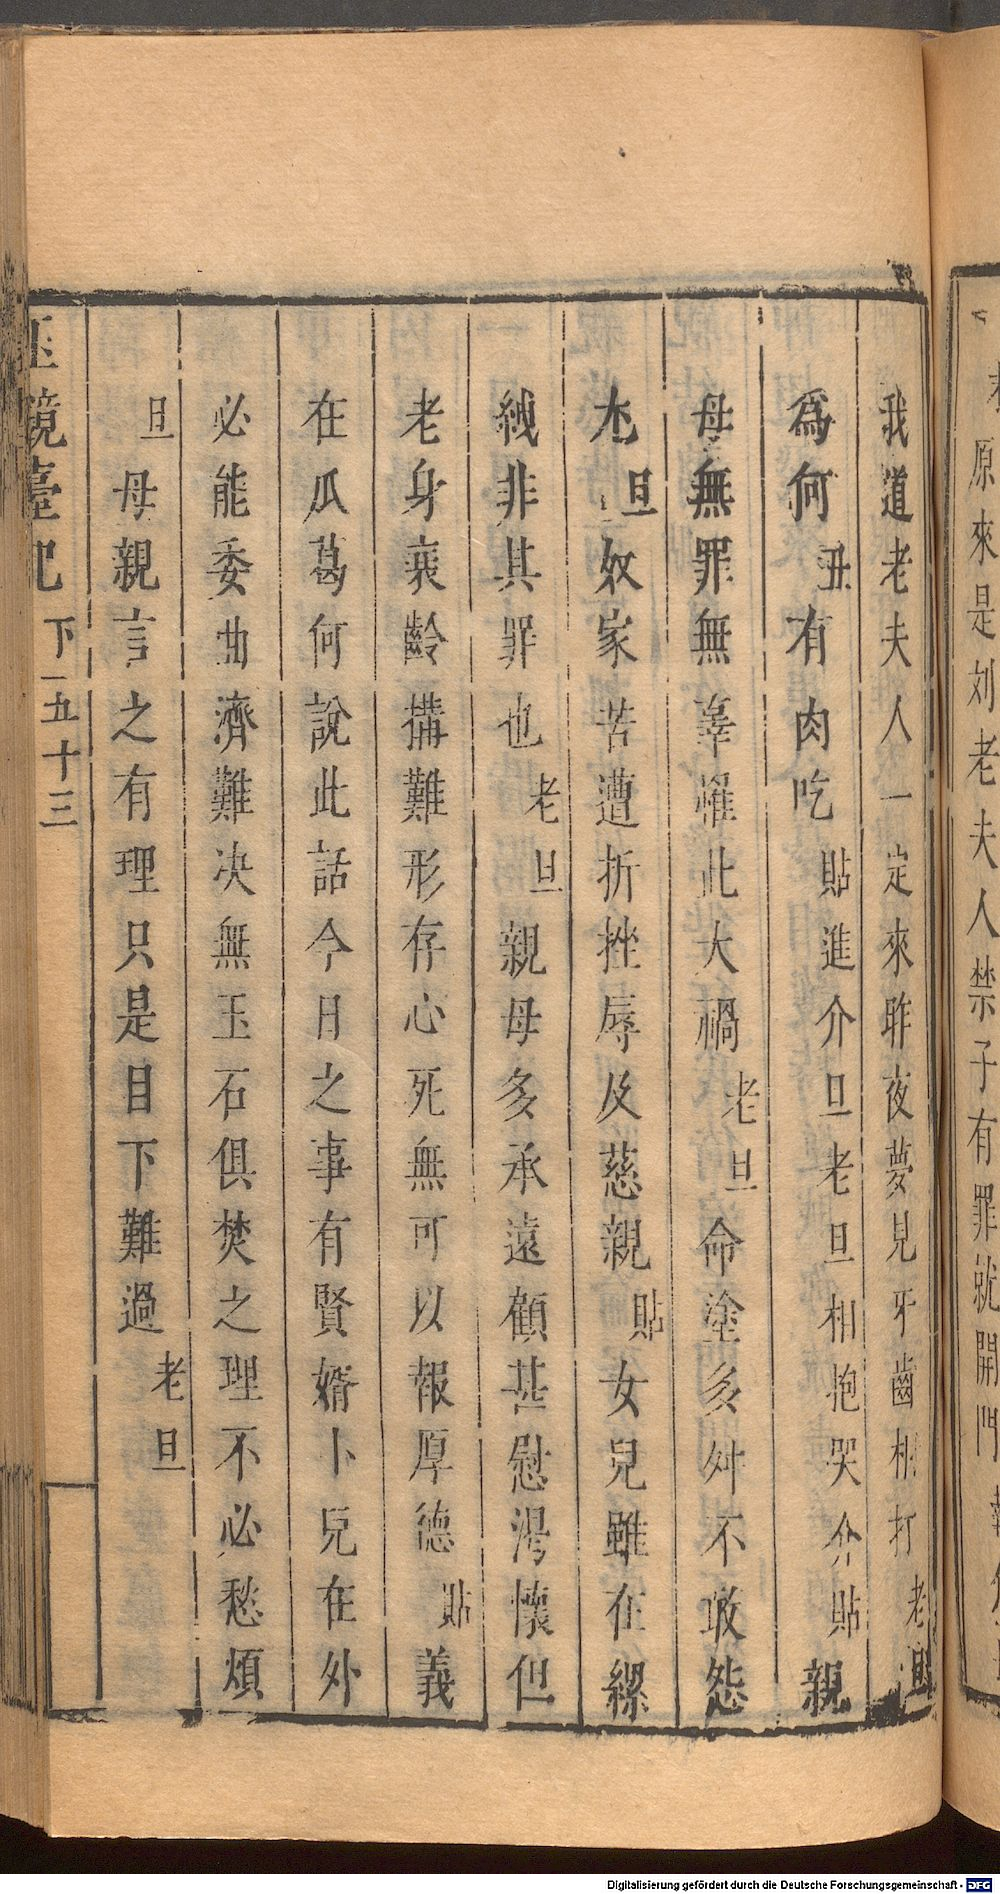 原來是刘老夫人禁子有罪就開門
我道老夫人一定來昨夜夢見牙齒相打老旦
爲何丑有肉吃貼進介旦老旦相抱哭介貼親
母無罪無辜罹此大禍老旦命塗多舛不敢怨
尤旦奴家苦遭折挫辱及慈親貼女兒雖在縲
絏非其罪也老旦親母多承遠顧甚慰渴懷但
老身衰齡搆難形存心死無可以報厚德貼義
在瓜葛何說此話今日之事有賢婿卜兒在外
必能委曲濟難决無玉石俱焚之理不必愁煩
旦母親言之有理只是目下難過老旦
玉鏡臺記 下 五十三
Digitalisierung gefördert durch die Deutsche Forschungsgemeinschaft - DFG